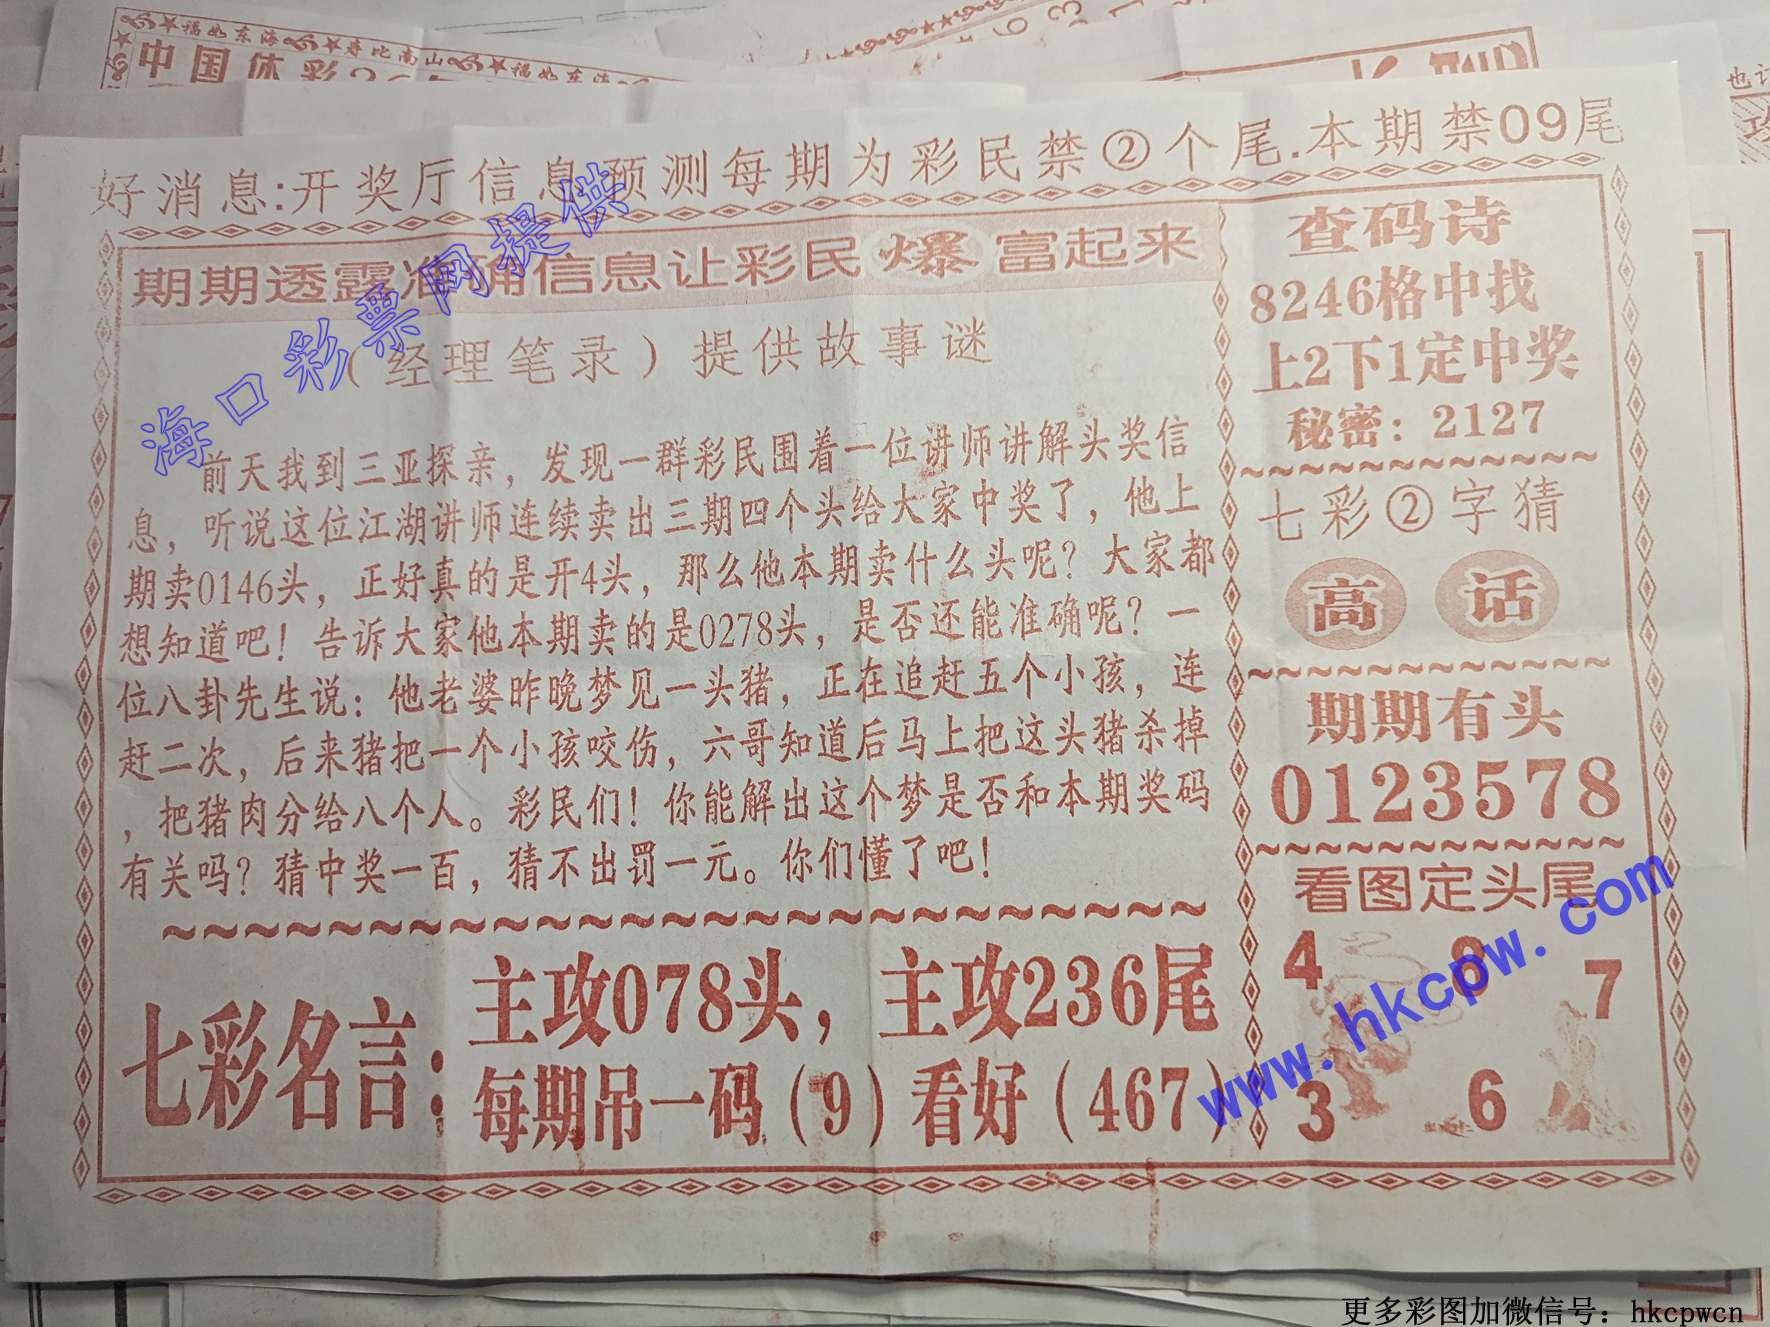 福如东海 寿比南山 福如东海
中国体彩
好消息:开奖厅信息预测每期为彩民禁②个尾.本期禁09尾
期期透露准确信息让彩民爆富起来
(经理笔录)提供故事谜
前天我到三亚探亲，发现一群彩民围着一位讲师讲解头奖信
息，听说这位江湖讲师连续卖出三期四个头给大家中奖了，他上
期卖0146头，正好真的是开4头，那么他本期卖什么头呢？大家都
想知道吧！告诉大家他本期卖的是0278头，是否还能准确呢？一
位八卦先生说：他老婆昨晚梦见一头猪，正在追赶五个小孩，连
赶二次，后来猪把一个小孩咬伤，六哥知道后马上把这头猪杀掉
，把猪肉分给八个人。彩民们！你能解出这个梦是否和本期奖码
有关吗？猜中奖一百，猜不出罚一元。你们懂了吧！
七彩名言：
主攻078头，主攻236尾
每期吊一码（9）看好（467）
查码诗
8246格中找
上2下1定中奖
秘密：2127
七彩②字猜
高 话
期期有头
0123578
看图定头尾
4 8 7
3 6
海口彩票网提供
www.hkcpw.com
更多彩图加微信号：hkcpwcn